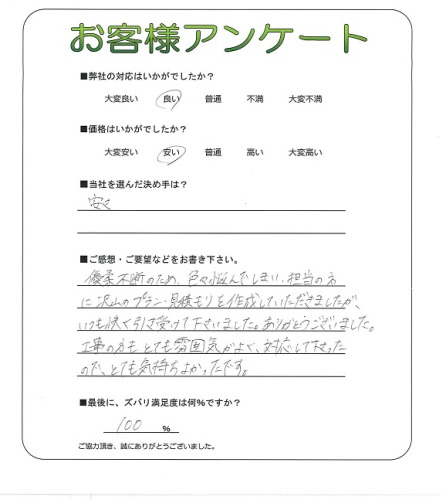 お客様アンケート
■弊社の対応はいかがでしたか?
大変良い 良い 普通 不満 大変不満
■価格はいかがでしたか?
大変安い 安い 普通 高い 大変高い
■当社を選んだ決め手は?
安さ
■ご感想・ご要望などをお書き下さい。
優柔不断のため、色々悩んでしまい、担当の方
に沢山のプラン・見積もりを作成していただきましたが、
いつも快く引き受けて下さいました。ありがとうございました。
工事の方もとても雰囲気がよく、対応して下さった
ので、とても気持ちよかったです。
■最後に、ズバリ満足度は何%ですか?
100 %
ご協力頂き、誠にありがとうございました。